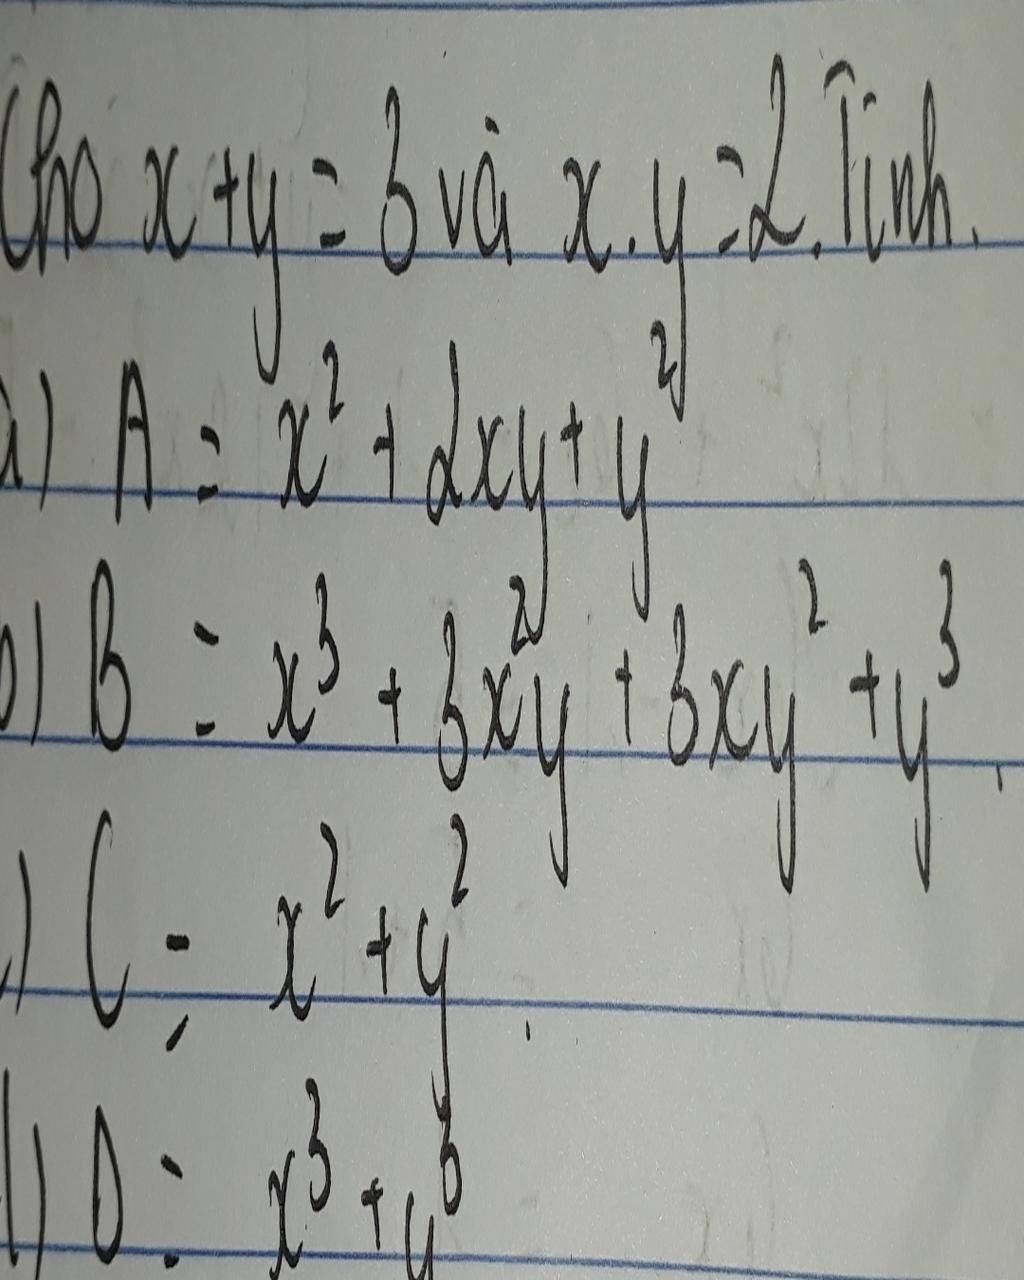 Cho x + y = 3 và x.y = 2. Tính.
a) A = x² + 2xy + y²
b) B = x³ + 3x²y + 3xy² + y³.
c) C = x² + y².
d) D = x³ + y³